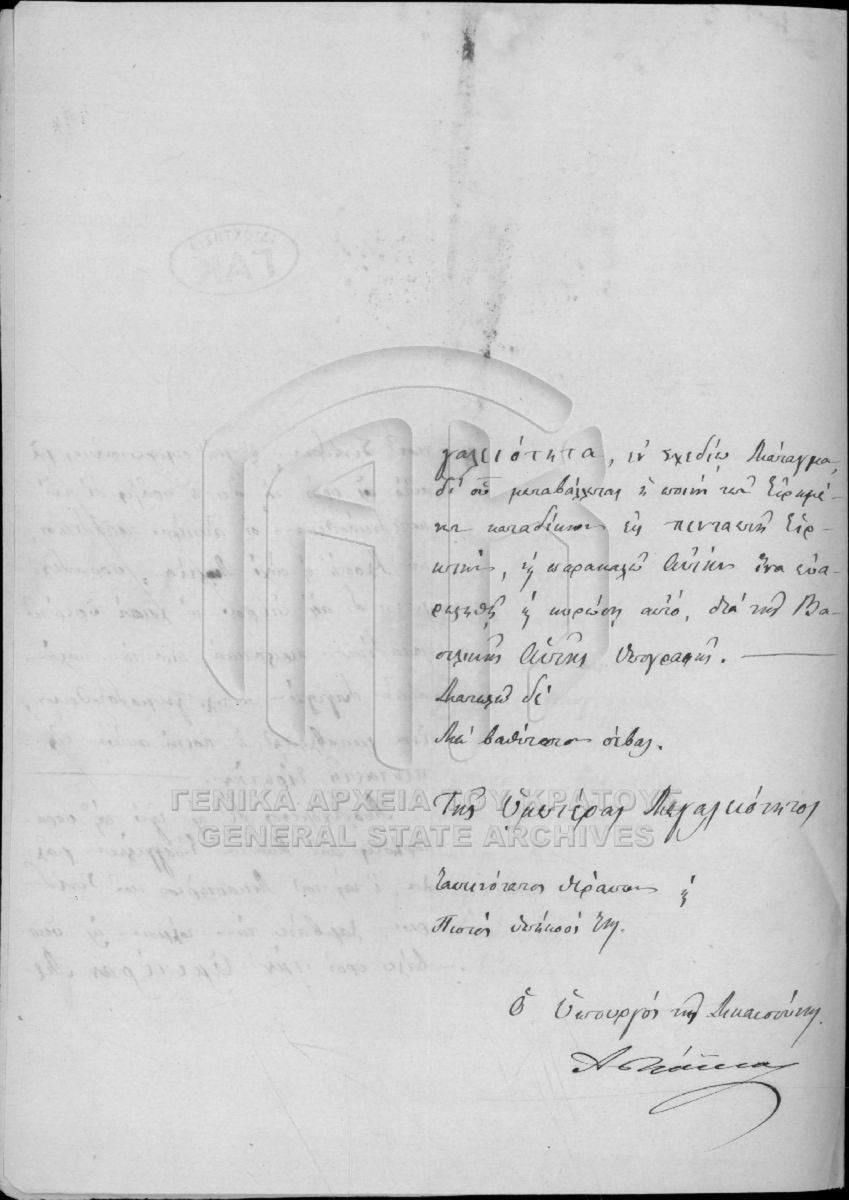 γαλειότητα, ἐν σχεδίῳ Διάταγμα,
δι' οὗ μεταβάλλεται ἡ ποινὴ τοῦ εἰρημέ-
νου καταδίκου εἰς πενταετῆ εἱρ-
κτήν, καὶ παρακαλῶ Αὐτὴν ἵνα εὐα-
ρεστηθῇ καὶ κυρώσῃ αὐτό, διὰ τῆς Βα-
σιλικῆς Αὐτῆς Ὑπογραφῆς.
Διατελῶ δὲ
Μὲ βαθύτατον σέβας.
Τῆς Ὑμετέρας Μεγαλειότητος
Ταπεινότατος θεράπων καὶ
Πιστὸς ὑπήκοός Της.
Ὁ Ὑπουργὸς τῆς Δικαιοσύνης
ΙΔΙΟΚΤΗΣΙΑ
ΓΑΚ
ΓΕΝΙΚΑ ΑΡΧΕΙΑ ΤΟΥ ΚΡΑΤΟΥΣ
GENERAL STATE ARCHIVES